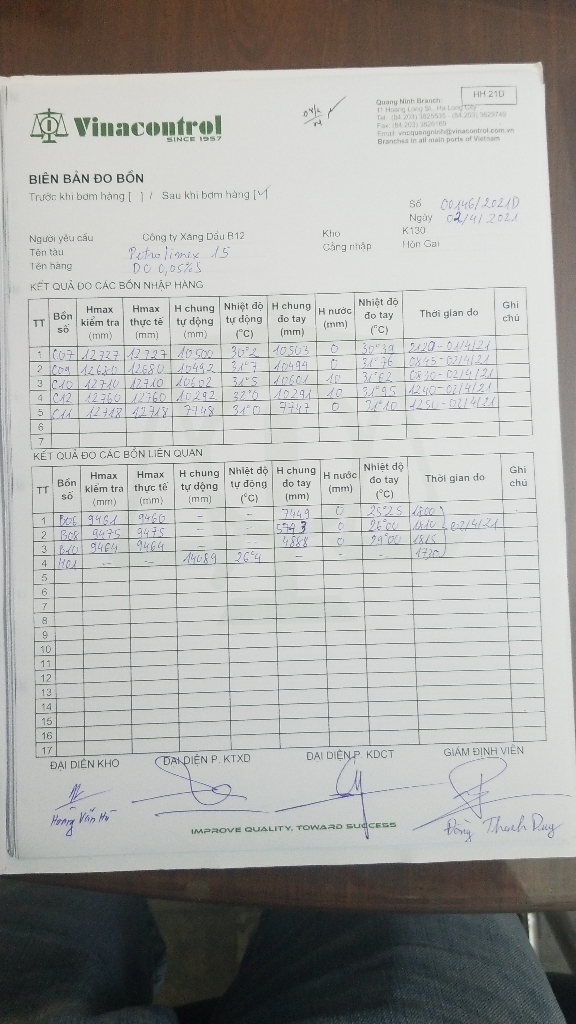 HH 21D
Vinacontrol
SINCE 1957
Quang Ninh Branch:
11 Hoang Long St., Ha Long City
Email: vncquangninh@vinacontrol.com.vn
Branches in all main ports of Vietnam
BIÊN BẢN ĐO BỒN
Trước khi bơm hàng [ ] / Sau khi bơm hàng [✓]
Số 00146/2021D
Ngày 02/4/2021
Người yêu cầu Công ty Xăng Dầu B12 Kho K130
Tên tàu Petrolimex 15 Cảng nhập Hòn Gai
Tên hàng DO 0,05%S
KẾT QUẢ ĐO CÁC BỒN NHẬP HÀNG
TT Bồn số Hmax kiểm tra (mm) Hmax thực tế (mm) H chung tự động (mm) Nhiệt độ tự động (°C) H chung đo tay (mm) H nước (mm) Nhiệt độ đo tay (°C) Thời gian đo Ghi chú
1 C07 12727 12727 10500 30°2 10503 0 30°39 2120-01/4/21
2 C09 12680 12680 10492 31°7 10494 0 31°76 0845-02/4/21
3 C10 12710 12710 10602 31°5 10601 10 31°62 0830-02/4/21
4 C12 12760 12760 10292 32°0 10291 10 31°95 1240-02/4/21
5 C11 12718 12718 7748 31°0 7747 0 31°10 1250-02/4/21
6
7
KẾT QUẢ ĐO CÁC BỒN LIÊN QUAN
TT Bồn số Hmax kiểm tra (mm) Hmax thực tế (mm) H chung tự động (mm) Nhiệt độ tự động (°C) H chung đo tay (mm) H nước (mm) Nhiệt độ đo tay (°C) Thời gian đo Ghi chú
1 B06 9461 9460 - - 7449 0 25°25 1800
2 B08 9475 9475 - - 0 26°00 1810 02/4/21
3 B10 9464 9464 - - 4888 0 29°00 1815
4 H01 - - 14089 26°4 - - - 1720
5
6
7
8
9
10
11
12
13
14
15
16
17
ĐẠI DIỆN KHO ĐẠI DIỆN P. KTXD ĐẠI DIỆN P. KDCT GIÁM ĐỊNH VIÊN
Hoàng Văn Hà
Đồng Thanh Duy
IMPROVE QUALITY, TOWARD SUCCESS